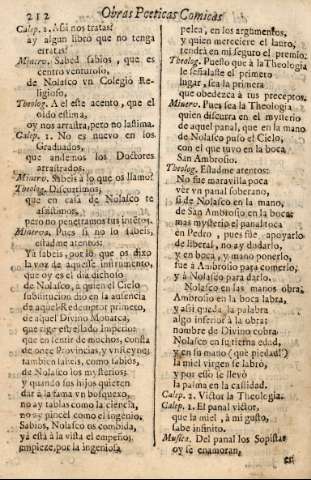 212 Obras Poeticas Comicas
Calep. 1. Assi nos tratas?
ay algun libro que no tenga
erratas?
Minerv. Sabed sabios, que es
centro venturoso,
de Nolasco vn Colegio Re-
ligioso,
Theolog. A el este acento, que el
oldo estima,
oy nos arrastra, pero no lastima.
Calep. 1. No es nuevo en los
Graduados,
que andemos los Doctores
arrastrados.
Minerv. Sabeis à lo que os llamo?
Theolog. Discurrimos,
que en casa de Nolasco te
assistimos,
pero no penetramos tus intetos.
Minerva. Pues si no lo sabeis,
estadme atentos:
Ya sabeis, por lo que os dixo
la voz de aquesse instrumento,
que oy es el dia dichoso
de Nolasco, à quien el Cielo
substitucion dió en la ausencia
de aquel Redemptor primero,
de aquel Divino Monarca,
que rige estrellado Imperio:
que en sentir de muchos, consta
de once Provincias, y vn Reyno:
tambien sabeis, como sabios,
de Nolasco los mysterios;
y quando sus hijos quieren
dar à la fama vn bosquexo,
no ay tablas como la ciencia,
no ay pincel como el ingenio.
Sabios, Nolasco os combida,
yà està à la vista el empeño,
empieze, por la ingeniosa
pelea, en los argumentos,
y quien mereciere el lauro,
tendrà en mi seguro el premio.
Theolog. Puesto que à la Theologia
le señalaste el primero
lugar, sea la primera
que obedezca à tus preceptos.
Minerv. Pues sea la Theologia
quien discurra en el mysterio
de aquel panal, que en la mano
de Nolasco puso el Cielo,
con el que tuvo en la boca
San Ambrosio.
Theolog. Estadme atentos:
No fue maravilla poca
ver vn panal soberano,
si de Nolasco en la mano,
de San Ambrosio en la boca:
mas mysterio el panal toca
en Pedro, pues fue apoyarlo
de liberal, no ay dudarlo,
y en boca, y mano ponerlo,
fue à Ambrosio para comerlo,
y à Nolasco para darlo.
Nolasco en las manos obra,
Ambrosio en la boca labra,
y assi queda la palabra
algo inferior à la obra:
nombre de Divino cobra
Nolasco en su tierna edad,
y en su mano (què piedad!)
la miel virgen se labrò,
y por esso se llevò
la palma en la castidad.
Calep. 2. Victor la Theologia.
Calep. 1. El panal victor,
que la miel, à mi gusto,
sabe infinito.
Musica. Del panal los Sopistas
oy se enamoran,